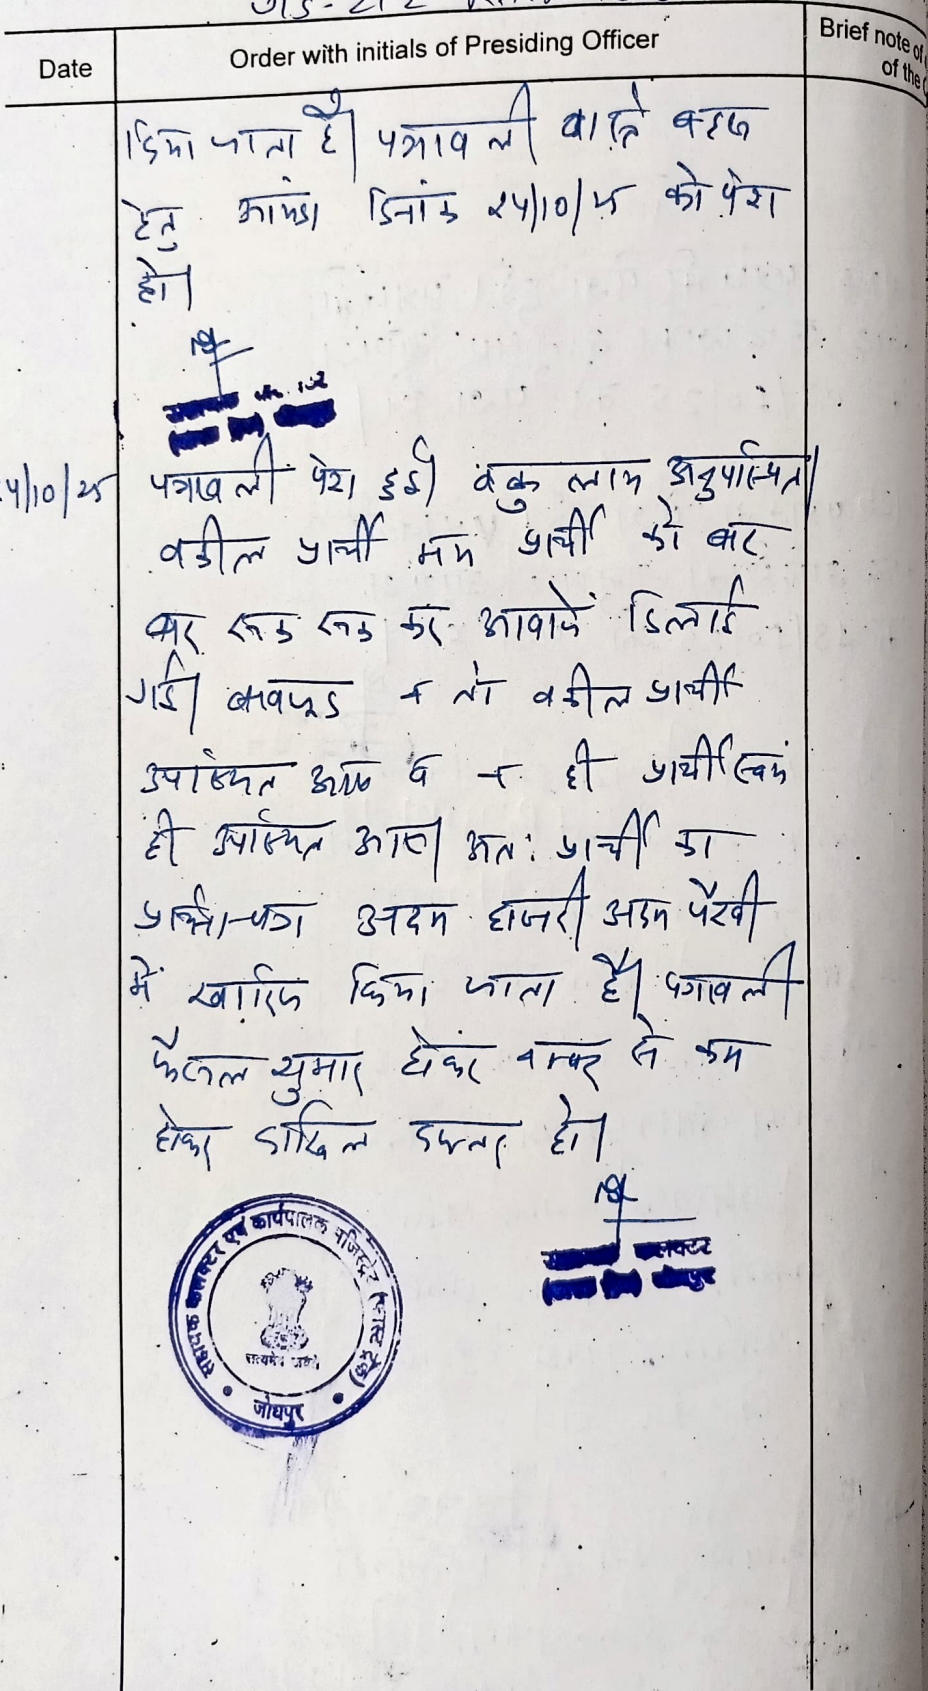 Date
Order with initials of Presiding Officer
Brief note of
of the
किया जाता है। पत्रावली वास्ते बहस
हेतु आईंदा दिनांक 24/10/25 को पेश
हो।
24/10/25 पत्रावली पेश हुई। अनुपस्थित।
वकील प्रार्थी मय प्रार्थी को बार
बार रूक रूक कर आवाजें दिलाई
गई। बावजूद न तो वकील प्रार्थी
उपस्थित आए व न ही प्रार्थी स्वयं
ही उपस्थित आए। अतः प्रार्थी का
प्रार्थना-पत्र अदम हाजरी अदम पैरवी
में खारिज किया जाता है। पत्रावली
फैसल शुमार होकर नम्बर से कम
होकर दाखिल दफ्तर हो।
कलक्टर
जोधपुर
सहायक कलक्टर एवं कार्यपालक मजिस्ट्रेट (फास्ट ट्रेक)
सत्यमेव जयते
जोधपुर